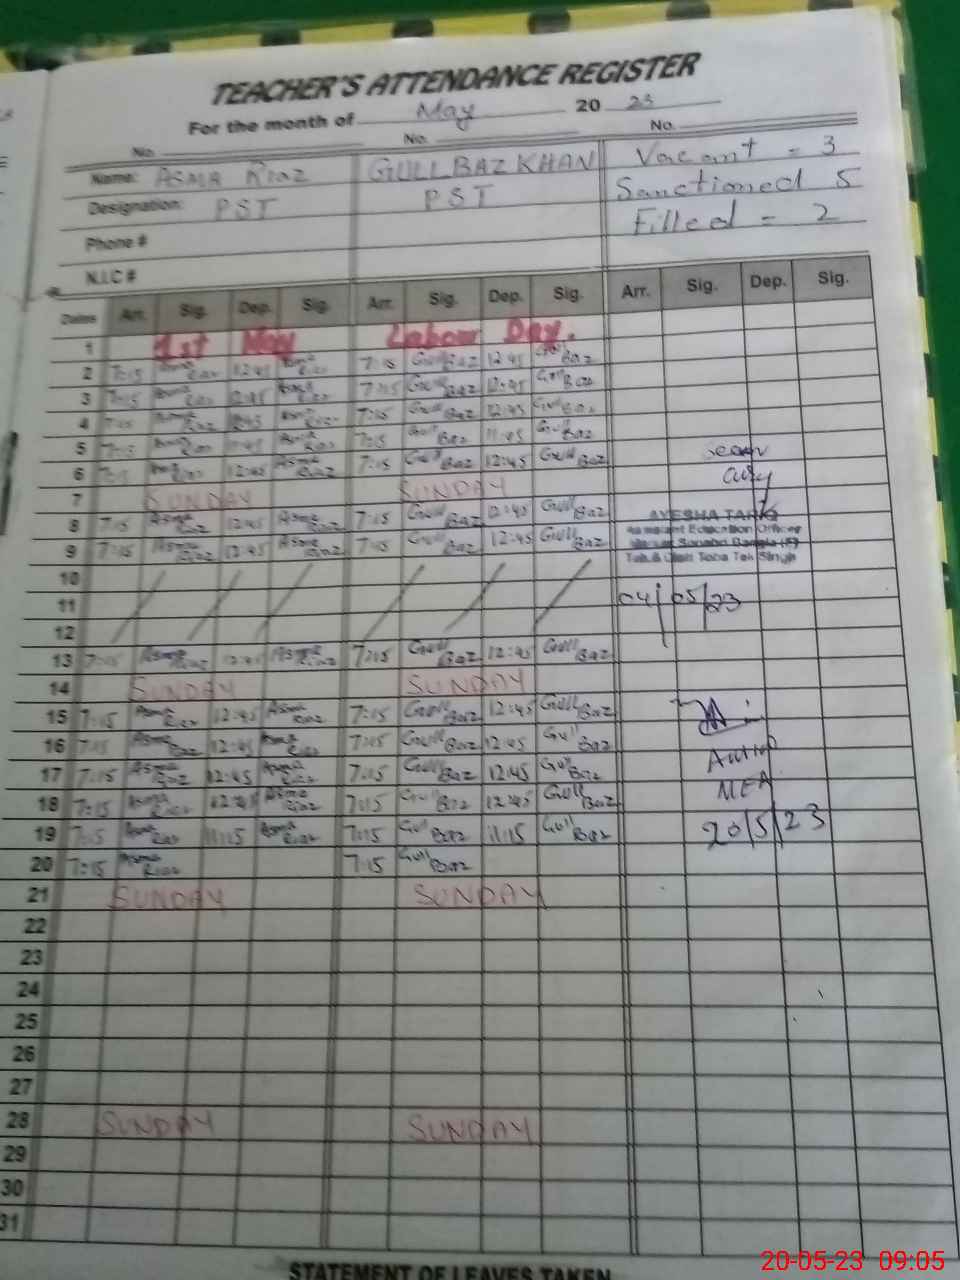 TEACHER'S ATTENDANCE REGISTER
For the month of May 20 23
No. No. No.
Name: ASMA Riaz GULL BAZ KHAN Vacant = 3
Designation: PST PST Sanctioned 5
Phone # Filled = 2
N.I.C #
Dates Arr. Sig. Dep. Sig. Arr. Sig. Dep. Sig. Arr. Sig. Dep. Sig.
1 1st May Labour Day.
2 7:15 Asma Riaz 12:45 Asma Riaz 7:15 Gull Baz 12:45 Gull Baz
3 7:15 Asma Riaz 12:45 Asma Riaz 7:15 Gull Baz 12:45 Gull Baz
4 7:15 Asma Riaz 12:45 Asma Riaz 7:15 Gull Baz 12:45 Gull Baz
5 7:15 Asma Riaz 11:45 Asma Riaz 7:15 Gull Baz 11:45 Gull Baz
6 7:15 Asma Riaz 12:45 Asma Riaz 7:15 Gull Baz 12:45 Gull Baz
7 SUNDAY SUNDAY
8 7:15 Asma Riaz 12:45 Asma Riaz 7:15 Gull Baz 12:45 Gull Baz AYESHA TARIQ
Assistant Education Officer
9 7:15 Asma Riaz 12:45 Asma Riaz 7:15 Gull Baz 12:45 Gull Baz
Teh & Distt Toba Tek Singh
10
11 04/05/23
12
13 7:15 Asma Riaz 12:45 Asma Riaz 7:15 Gull Baz 12:45 Gull Baz
14 SUNDAY SUNDAY
15 7:15 Asma Riaz 12:45 Asma Riaz 7:15 Gull Baz 12:45 Gull Baz
16 7:15 Asma Riaz 12:45 Asma Riaz 7:15 Gull Baz 12:45 Gull Baz
17 7:15 Asma Riaz 12:45 Asma Riaz 7:15 Gull Baz 12:45 Gull Baz MEA
18 7:15 Asma Riaz 12:45 Asma Riaz 7:15 Gull Baz 12:45 Gull Baz
19 7:15 Asma Riaz 11:15 Asma Riaz 7:15 Gull Baz 11:15 Gull Baz 20/5/23
20 7:15 Asma Riaz 7:15 Gull Baz
21 SUNDAY SUNDAY
22
23
24
25
26
27
28 SUNDAY SUNDAY
29
30
31
STATEMENT OF LEAVES TAKEN
20-05-23 09:05